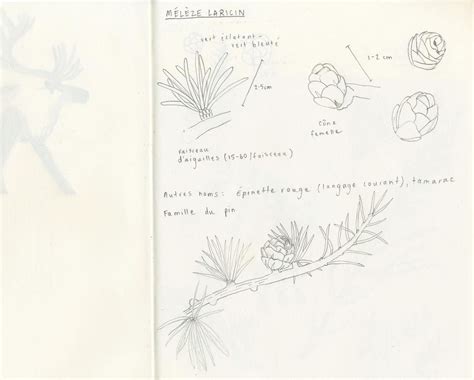 MÉLÈZE LARICIN
vert éclatant-
vert bleuté
2.5cm
1-2 cm
cône
femelle
Faisceau
d'aiguilles (15-60/faisceau)
Autres noms: Épinette rouge (langage courant), tamarac
Famille du pin